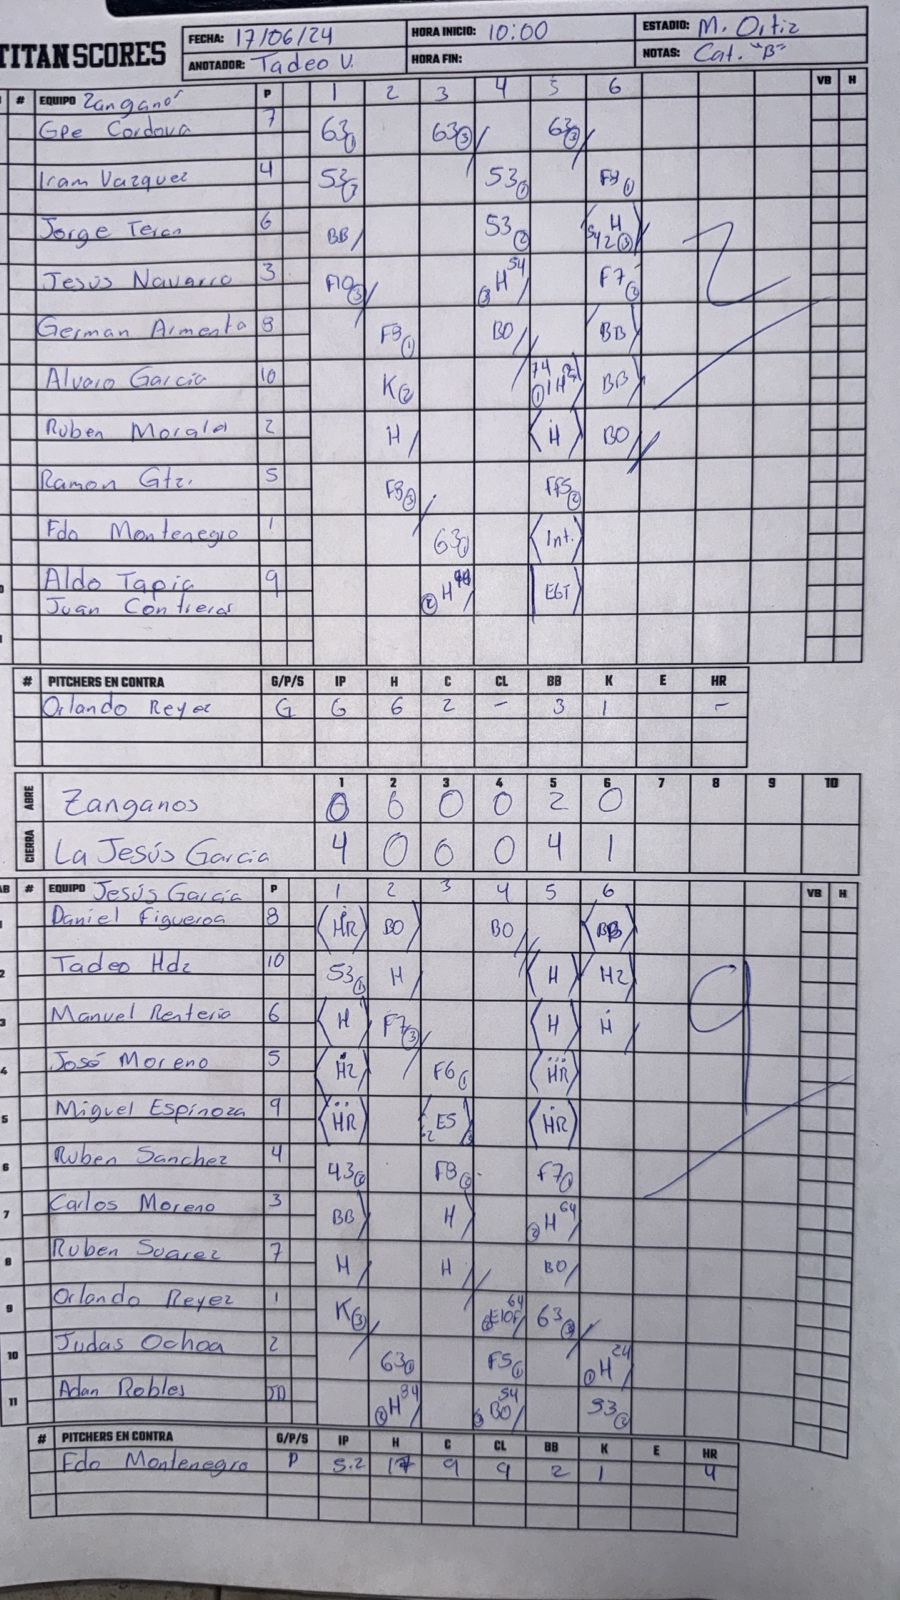 TITAN SCORES
FECHA: 17/06/24 HORA INICIO: 10:00 ESTADIO: M. Ortiz
ANOTADOR: Tadeo V. HORA FIN: NOTAS: Cat. "B"
# EQUIPO Zangano's P 1 2 3 4 5 6 VB H
Gpe Cordova 7 63① 63③ 63③
Iram Vazquez 4 53② 53① F9①
Jorge Teran 6 BB 53② H 542③
Jesús Navarro 3 F10③ ③H54 F7②
German Armenta 8 F9① BO BB
Alvaro Garcia 10 K② 74 ①H BB
Ruben Morald 2 H H BO
Ramon Gtz. 5 F8③ FF5②
Fdo Montenegro 1 63① Int.
Aldo Tapia 9 ②H EGT
Juan Contreras
# PITCHERS EN CONTRA G/P/S IP H C CL BB K E HR
Orlando Reyez G 6 6 2 - 3 1 -
1 2 3 4 5 6 7 8 9 10
ABRE Zanganos 0 0 0 0 2 0
CIERRA La Jesús Garcia 4 0 0 0 4 1
AB # EQUIPO Jesús Garcia P 1 2 3 4 5 6 VB H
1 Daniel Figueroa 8 HR BO BO BB
2 Tadeo Hdz 10 53① H H H2
3 Manuel Renteria 6 H F7③ H H
9
4 José Moreno 5 H2 F6① HR
5 Miguel Espinoza 9 HR E5 HR
6 Ruben Sanchez 4 43② F8② F7①
7 Carlos Moreno 3 BB H ②H64
8 Ruben Suarez 7 H H BO
9 Orlando Reyez 1 K③ E10F 64 63③
10 Judas Ochoa 2 63① F5① ①H24
11 Adan Robles ②H34 BO 54 53②
# PITCHERS EN CONTRA G/P/S IP H C CL BB K E HR
Fdo Montenegro P 5.2 17 9 9 2 1 4